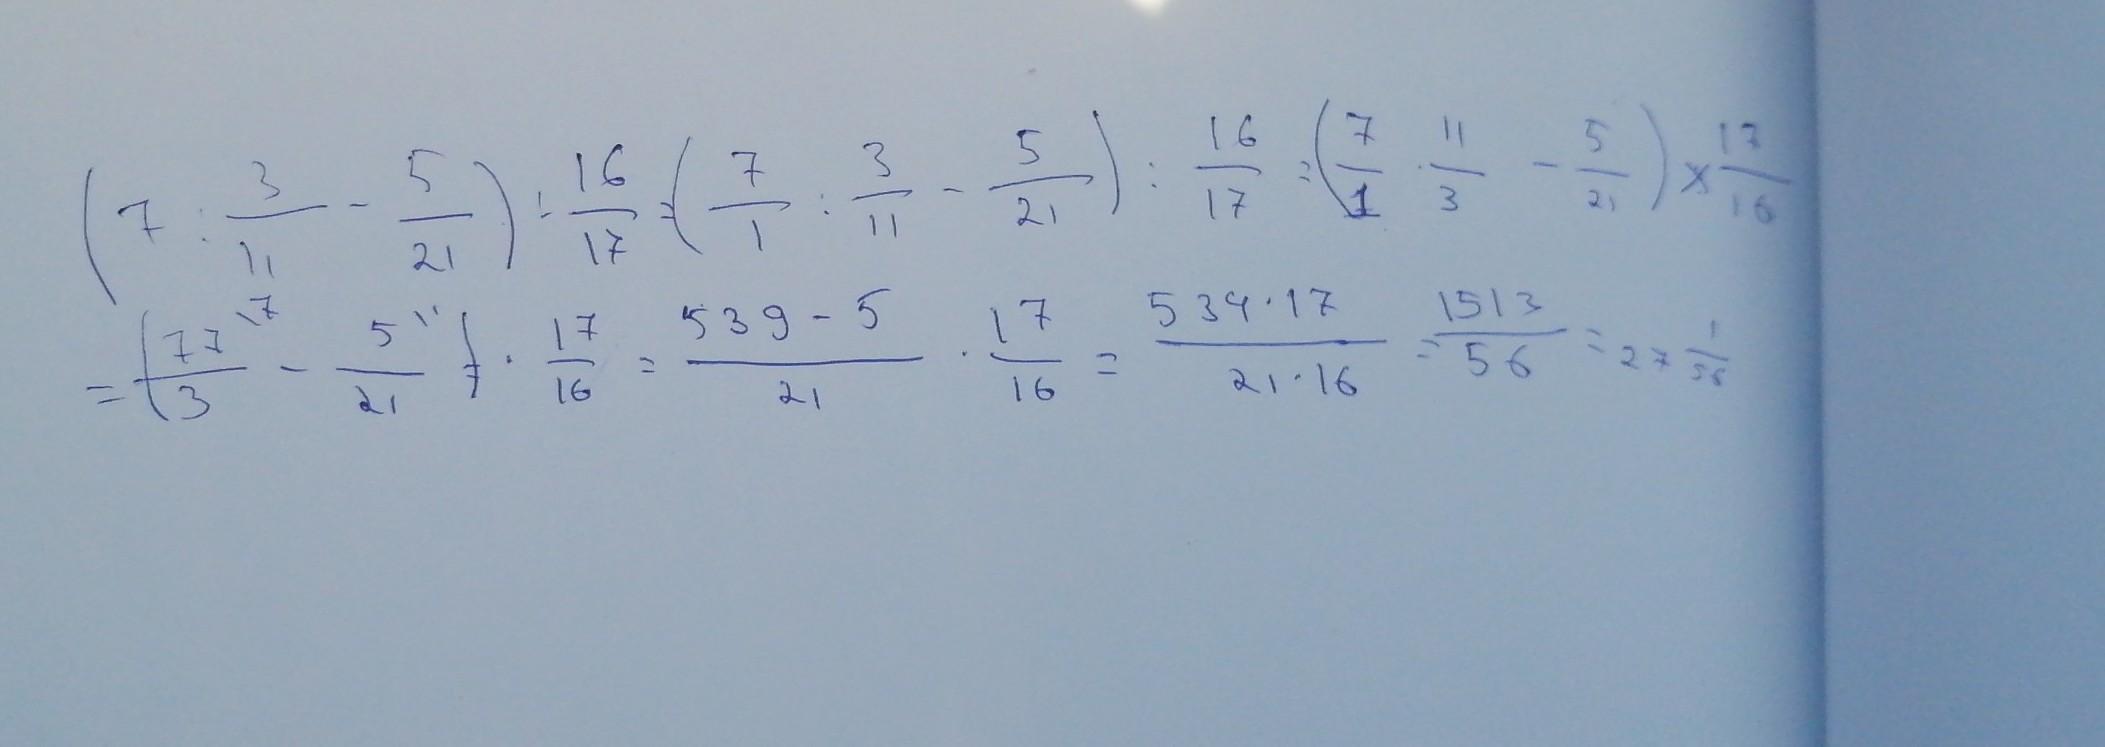 (7 : 3/11 - 5/21) : 16/17 = (7/1 : 3/11 - 5/21) : 16/17 = (7/1 · 11/3 - 5/21) × 17/16
= (77\7/3 - 5\1/21) · 17/16 = 539 - 5/21 · 17/16 = 534·17/21·16 = 1513/56 = 27 1/56